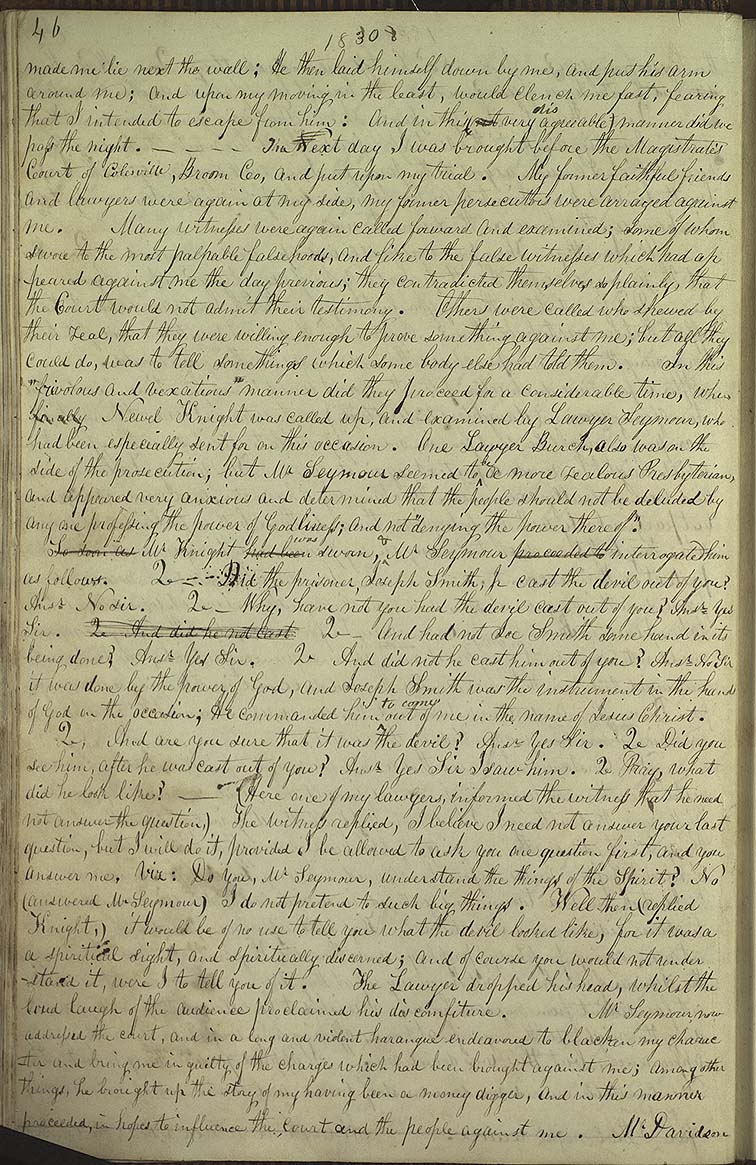 46
1830
made me lie next the wall; He then laid himself down by me, and put his arm
around me; and upon my moving in the least, would clench me fast, fearing
that I intended to escape from him: And in this (not very disagreeable) manner did we
pass the night. — — — — The Next day I was brought before the Magistrate's
Court of Colesville, Broom Co, and put upon my trial. My former faithful friends
and lawyers were again at my side, my former persecutors were arrayed against
me. Many witnesses were again called forward and examined; some of whom
swore to the most palpable falsehoods, and like to the false witnesses which had ap
peared against me the day previous; they contradicted themselves so plainly, that
the Court would not admit their testimony. Others were called who shewed by
their zeal, that they were willing enough to prove something against me; but all they
could do, was to tell somethings which some body else had told them. In this
"frivolous and vexatious" manner did they proceed for a considerable time, when
finally Newel Knight was called up, and examined by Lawyer Seymour, who
had been especially sent for on this occasion. One Lawyer Burch, also was on the
side of the prosecution; but Mr Seymour seemed to be a more zealous Presbyterian,
and appeared very anxious and determined that the people should not be deluded by
any one professing the power of Godliness; and not "denying the power thereof".
So soon as Mr Knight had been was sworn, & Mr Seymour proceeded to interrogated him
as follows. Q— Did the prisoner, Joseph Smith, Jr cast the devil out of you?
Ansr No sir. Q— Why, have not you had the devil cast out of you? Ansr Yes
Sir. Q And did he not cast Q— And had not Joe Smith some hand in its
being done? Ansr Yes Sir. Q And did not he cast him out of you? Ansr No Sir
it was done by the power of God, and Joseph Smith was the instrument in the hands
of God on the occasion; He commanded him to come out of me in the name of Jesus Christ.
Q, And are you sure that it was the devil? Ansr Yes Sir. Q Did you
see him, after he was cast out of you? Ansr Yes Sir I saw him. Q Pray, what
did he look like? — (Here one of my lawyers, informed the witness that he need
not answer the question,) The witness replied, I believe I need not answer your last
question, but I will do it, provided I be allowed to ask you one question first, and you
answer me, viz: Do you, Mr Seymour, understand the things of the Spirit? No
(answered Mr Seymour) I do not pretend to such big things. Well then (replied
Knight,) it would be of no use to tell you what the devil looked like, for it was a
a spiritual sight, and spiritually discerned; and of course you would not under
stand it, were I to tell you of it. The Lawyer dropped his head, whilst the
loud laugh of the audience proclaimed his discomfiture. Mr Seymour now
addressed the court, and in a long and violent harangue endeavored to blacken my charac
ter and bring me in guilty of the charges which had been brought against me; among other
things, he brought up the story of my having been a money digger, and in this manner
proceeded, in hopes to influence the court and the people against me. Mr Davidson